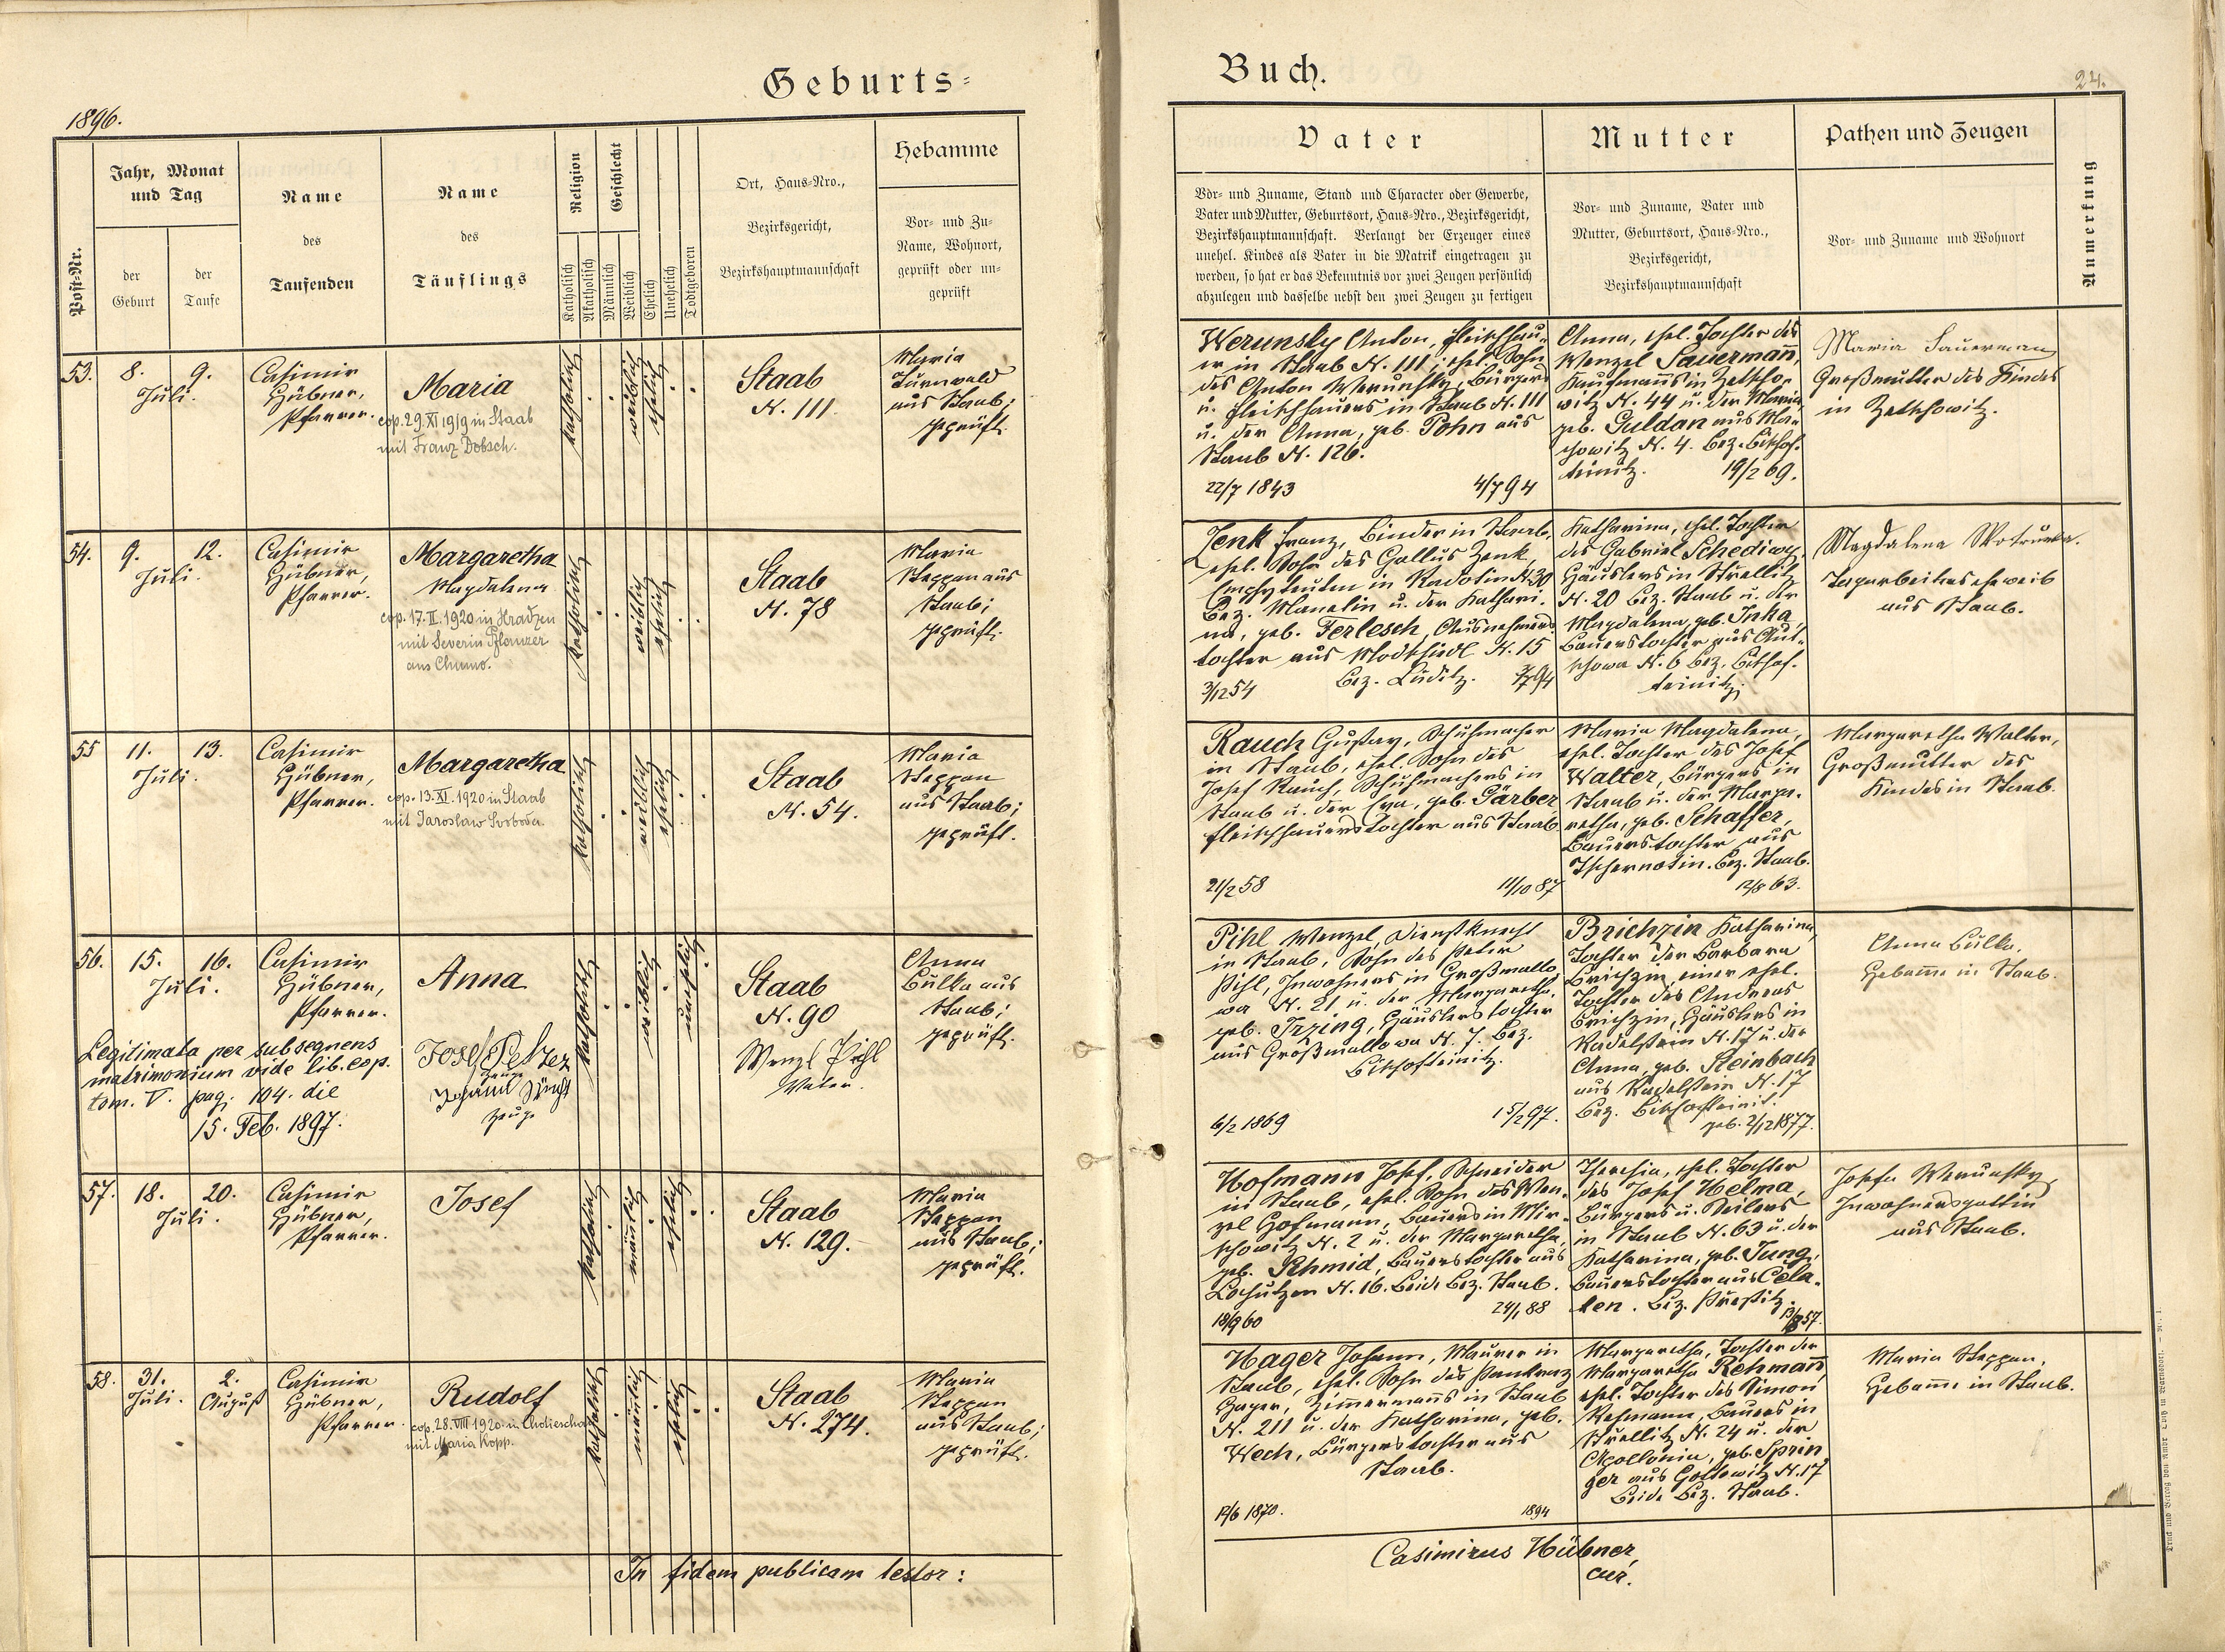 Geburts=
1896.
Post-Nr.
Jahr, Monat
und Tag
der
Geburt
der
Taufe
Name
des
Taufenden
Name
des
Täuflings
Religion
Katholisch
Akatholisch
Geschlecht
Männlich
Weiblich
Ehelich
Unehelich
Todtgeboren
Ort, Haus-Nro.,
Bezirksgericht,
Bezirkshauptmannschaft
Hebamme
Vor- und Zu-
Name, Wohnort,
geprüft oder un-
geprüft
53.
8. 9.
Juli.
Casimir
Hübner,
Pfarrer.
Maria
cop. 29. XI 1919 in Staab
mit Franz Dobsch.
katholisch
weiblich
ehelich
Staab
N. 111.
Maria
Turnwald
aus Staab;
geprüft.
54.
9. 12.
Juli.
Casimir
Hübner,
Pfarrer.
Margaretha
Magdalena
cop. 17. II. 1920 in Hradzen
mit Severin Pflanzer
aus Chumo.
katholisch
weiblich
ehelich
Staab
N. 78
Maria
Steppan aus
Staab;
geprüft.
55
11. 13.
Juli.
Casimir
Hübner,
Pfarrer.
Margaretha
cop. 13. XI. 1920 in Staab
mit Jaroslaw Svoboda.
katholisch
weiblich
ehelich
Staab
N. 54.
Maria
Steppan
aus Staab;
geprüft.
56.
15. 16.
Juli.
Casimir
Hübner,
Pfarrer.
Anna
katholisch
weiblich
unehelich
Staab
N. 90
Anna
Bulka aus
Staab;
geprüft.
Legitimata per subsequens
matrimonium vide lib. cop.
tom. V. pag. 104. die
15. Feb. 1897.
Josef Pelzer
Zeuge
Johann
Zeuge
Wenzl Pihl
Vater.
57.
18. 20.
Juli.
Casimir
Hübner,
Pfarrer.
Josef
katholisch
männlich
ehelich
Staab
N. 129.
Maria
Steppan
aus Staab;
geprüft.
58.
31. 2.
Juli. August
Casimir
Hübner,
Pfarrer.
Rudolf
cop. 28. VIII 1920 in Chotieschau
mit Maria Kopp.
katholisch
männlich
ehelich
Staab
N. 274.
Maria
Steppan
aus Staab;
geprüft.
In fidem publicam testor:
Buch.
24.
Vater
Vor- und Zuname, Stand und Character oder Gewerbe,
Vater und Mutter, Geburtsort, Haus-Nro., Bezirksgericht,
Bezirkshauptmannschaft. Verlangt der Erzeuger eines
unehel. Kindes als Vater in die Matrik eingetragen zu
werden, so hat er das Bekenntnis vor zwei Zeugen persönlich
abzulegen und dasselbe nebst den zwei Zeugen zu fertigen
Mutter
Vor- und Zuname, Vater und
Mutter, Geburtsort, Haus-Nro.,
Bezirksgericht,
Bezirkshauptmannschaft
Pathen und Zeugen
Vor- und Zuname und Wohnort
Anmerkung
Werunsky Anton, Fleischhau-
er in Staab N. 111; ehel. Sohn
des Anton Werunsky, Bürgers
u. Fleischhauers in Staab N. 111
u. der Anna, geb. Pohn aus
Staab N. 126.
22/7 1843 4/7 94
Anna, ehel. Tochter des
Wenzel Sauermann,
Kaufmanns in Zetscho-
witz N. 44 u. der Maria,
geb. Guldan aus Ma-
chowitz N. 4. Bez. Bischof-
teinitz. 19/2 69.
Maria Sauerman
Großmutter des Kindes
in Zetschowitz.
Zenk Franz, Binder in Staab,
ehel. Sohn des Gallus Zenk,
Emphyteuten in Radotin N. 30
Bez. Manetin u. der Kathari-
na, geb. Ferlesch, Ausnehmers
tochter aus Modschiedl N. 15
Bez. Luditz.
3/12 54
Katharina, ehel. Tochter
des Gabriel Schediwy,
Häuslers in Strellitz
N. 20 Bez. Staab u. der
Magdalena, geb. Inka,
Bauerstochter aus
N. 6 Bez. Bischof-
teinitz.
Magdalena Wotruba.
Tagarbeiterseheweib
aus Staab.
Rauch Gustav, Schuhmacher
in Staab, ehel. Sohn des
Josef Rauch, Schuhmachers in
Staab u. der Eva, geb. Gärber
Fleischhauerstochter aus Staab.
21/2 58 11/10 87
Maria Magdalena,
ehel. Tochter des Josef
Walter, Bürgers in
Staab u. der Marga-
retha, geb. Schaffer,
Bauerstochter aus
Tschernotin. Bez. Staab.
12/8 63.
Margaretha Walter,
Großmutter des
Kindes in Staab.
Pihl Wenzel, Dienstknecht
in Staab, Sohn des Peter
Pihl, Inwohners in Großmallo-
wa N. 21 u. der Margaretha,
geb. Irzing, Häuslerstochter
aus Großmallowa N. 7. Bez.
Bischofteinitz.
6/2 1869 15/2 97.
Brichzin Katharina,
Tochter der Barbara
Brichzin, einer ehel.
Tochter des Andreas
Brichzin, Häuslers in
Radelstein N. 17 u. der
Anna, geb. Steinbach
aus Radelstein N. 17
Bez. Bischofteinit.
geb. 2/12 1877.
Anna Bulka,
Hebamme in Staab.
Hofmann Josef, Schneider
in Staab, ehel. Sohn des Wen-
zel Hofmann, Bauers in Mir-
schowitz N. 2 u. der Margaretha,
geb. Schmid, Bauerstochter aus
Lohutzen N. 16. Beide Bez. Staab.
18/9 60 24/1 88
Theresia, ehel. Tochter
des Josef Helma,
Bürgers u. Seilers
in Staab N. 63 u. der
Katharina, geb. Jung,
Bauerstochter aus Cela-
ken. Bez. Přestitz.
Josefa Werunsky,
Inwohnersgattin
aus Staab.
Hager Johann, Maurer in
Staab, ehel. Sohn des Pankraz
Hager, Zimmermanns in Staab
N. 211 u. der Katharina, geb.
Wech, Bürgerstochter aus
Staab.
12/6 1870. 1894
Margaretha, Tochter der
Margaretha Rehmann,
ehel. Tochter des Simon
Rehmann, Bauers in
Strellitz N. 24 u. der
Apollonia, geb. Sprin
ger aus Gottowitz N. 17
Beide Bez. Staab.
Maria Steppan,
Hebamme in Staab.
Casimirus Hübner,
cur.